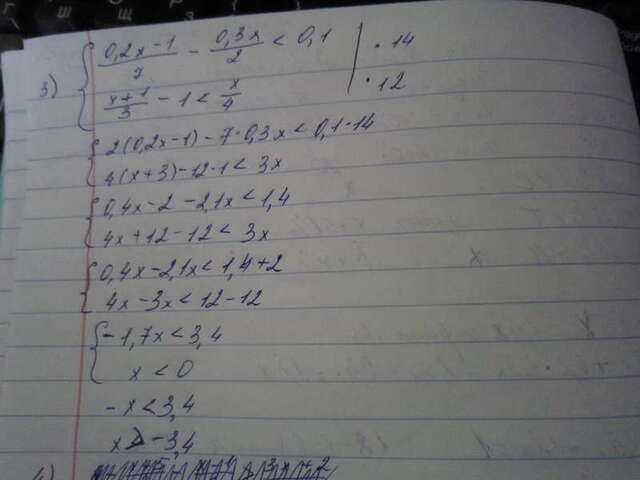 3) { (0,2x-1)/7 - 0,3x/2 < 0,1 | · 14
(x+1)/3 - 1 < x/4 | · 12
{ 2(0,2x-1) - 7·0,3x < 0,1·14
4(x+3) - 12·1 < 3x
{ 0,4x - 2 - 2,1x < 1,4
4x + 12 - 12 < 3x
{ 0,4x - 2,1x < 1,4 + 2
4x - 3x < 12 - 12
{ -1,7x < 3,4
x < 0
-x < 3,4
x > -3,4